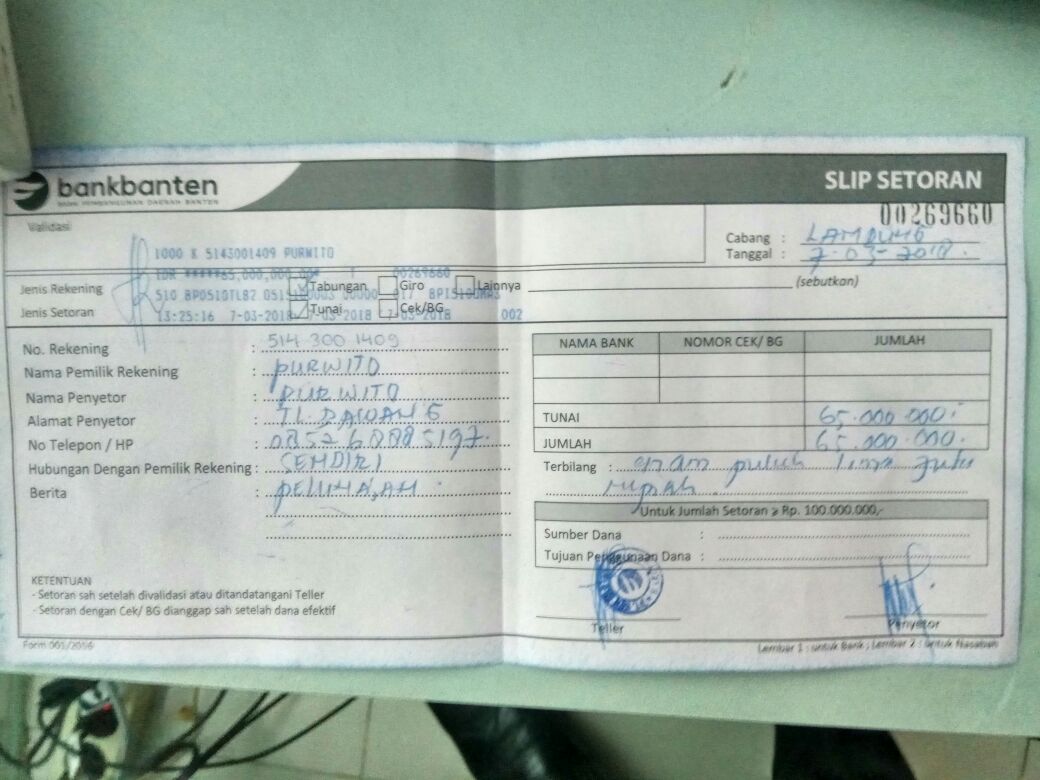 bankbanten
BANK PEMBANGUNAN DAERAH BANTEN
SLIP SETORAN
00269660
Validasi
Cabang : LAMPUNG
Tanggal : 7-03-2018
1000 K 5143001409 PURWITO
IDR *****65,000,000.00* 00269660
Jenis Rekening Tabungan Giro Lainnya (sebutkan)
510 BP0510TL82
Jenis Setoran Tunai Cek/BG
13:25:16 7-03-2018 7-03-2018 002
No. Rekening : 514 300 1409
Nama Pemilik Rekening : PURWITO
Nama Penyetor : PURWITO
Alamat Penyetor : TL. BAWANG
No Telepon / HP : 085268885197
Hubungan Dengan Pemilik Rekening : SENDIRI
Berita :
NAMA BANK NOMOR CEK/ BG JUMLAH
TUNAI 65.000.000.
JUMLAH 65.000.000.
Terbilang : enam puluh lima juta
rupiah.
Untuk Jumlah Setoran ≥ Rp. 100.000.000,-
Sumber Dana :
Tujuan Penggunaan Dana :
KETENTUAN
- Setoran sah setelah divalidasi atau ditandatangani Teller
- Setoran dengan Cek/ BG dianggap sah setelah dana efektif
Teller
Penyetor
Form 001/2016
Lembar 1 : untuk Bank ; Lembar 2 : untuk Nasabah